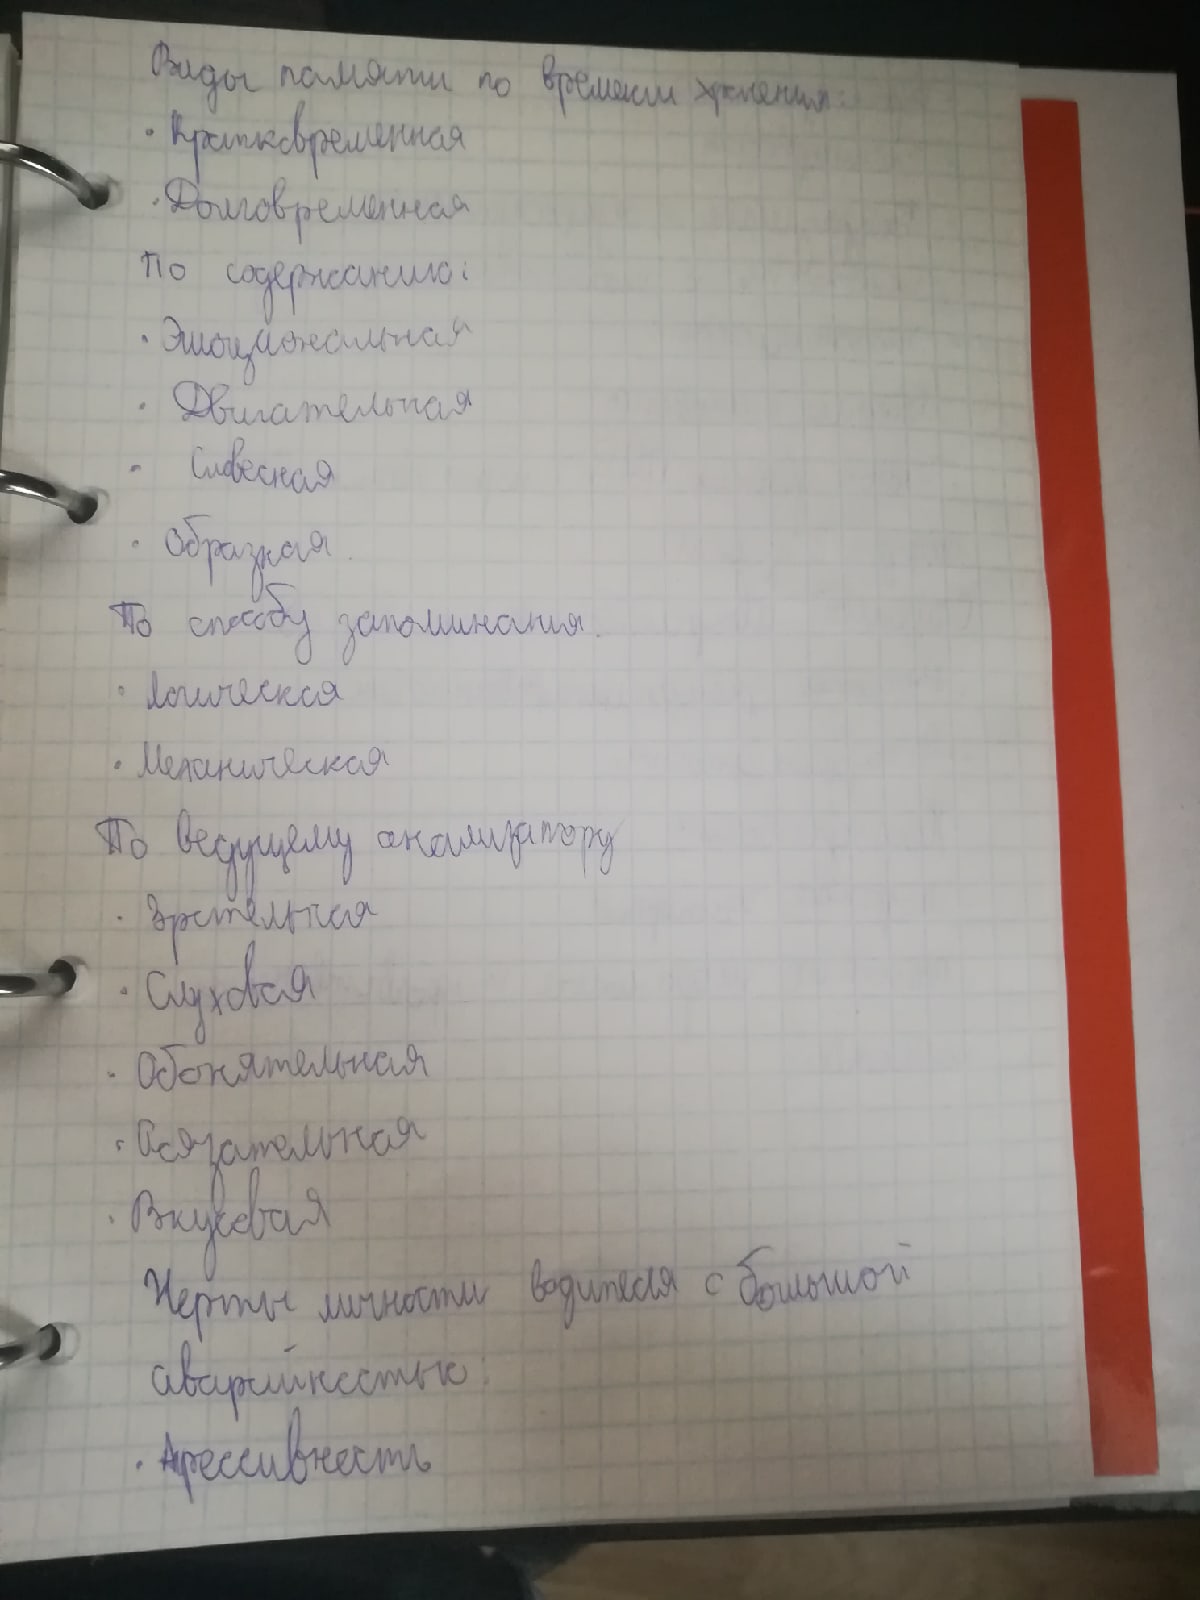 Виды памяти по времени хранения:
· Кратковременная
· Долговременная
По содержанию:
· Эмоциональная
· Двигательная
· Словесная
· Образная.
По способу запоминания.
· Логическая
· Механическая
По ведущему анализатору
· Зрительная
· Слуховая
· Обонятельная
· Осязательная
· Вкусовая
Черты личности водителя с большой
аварийностью:
· Агрессивность